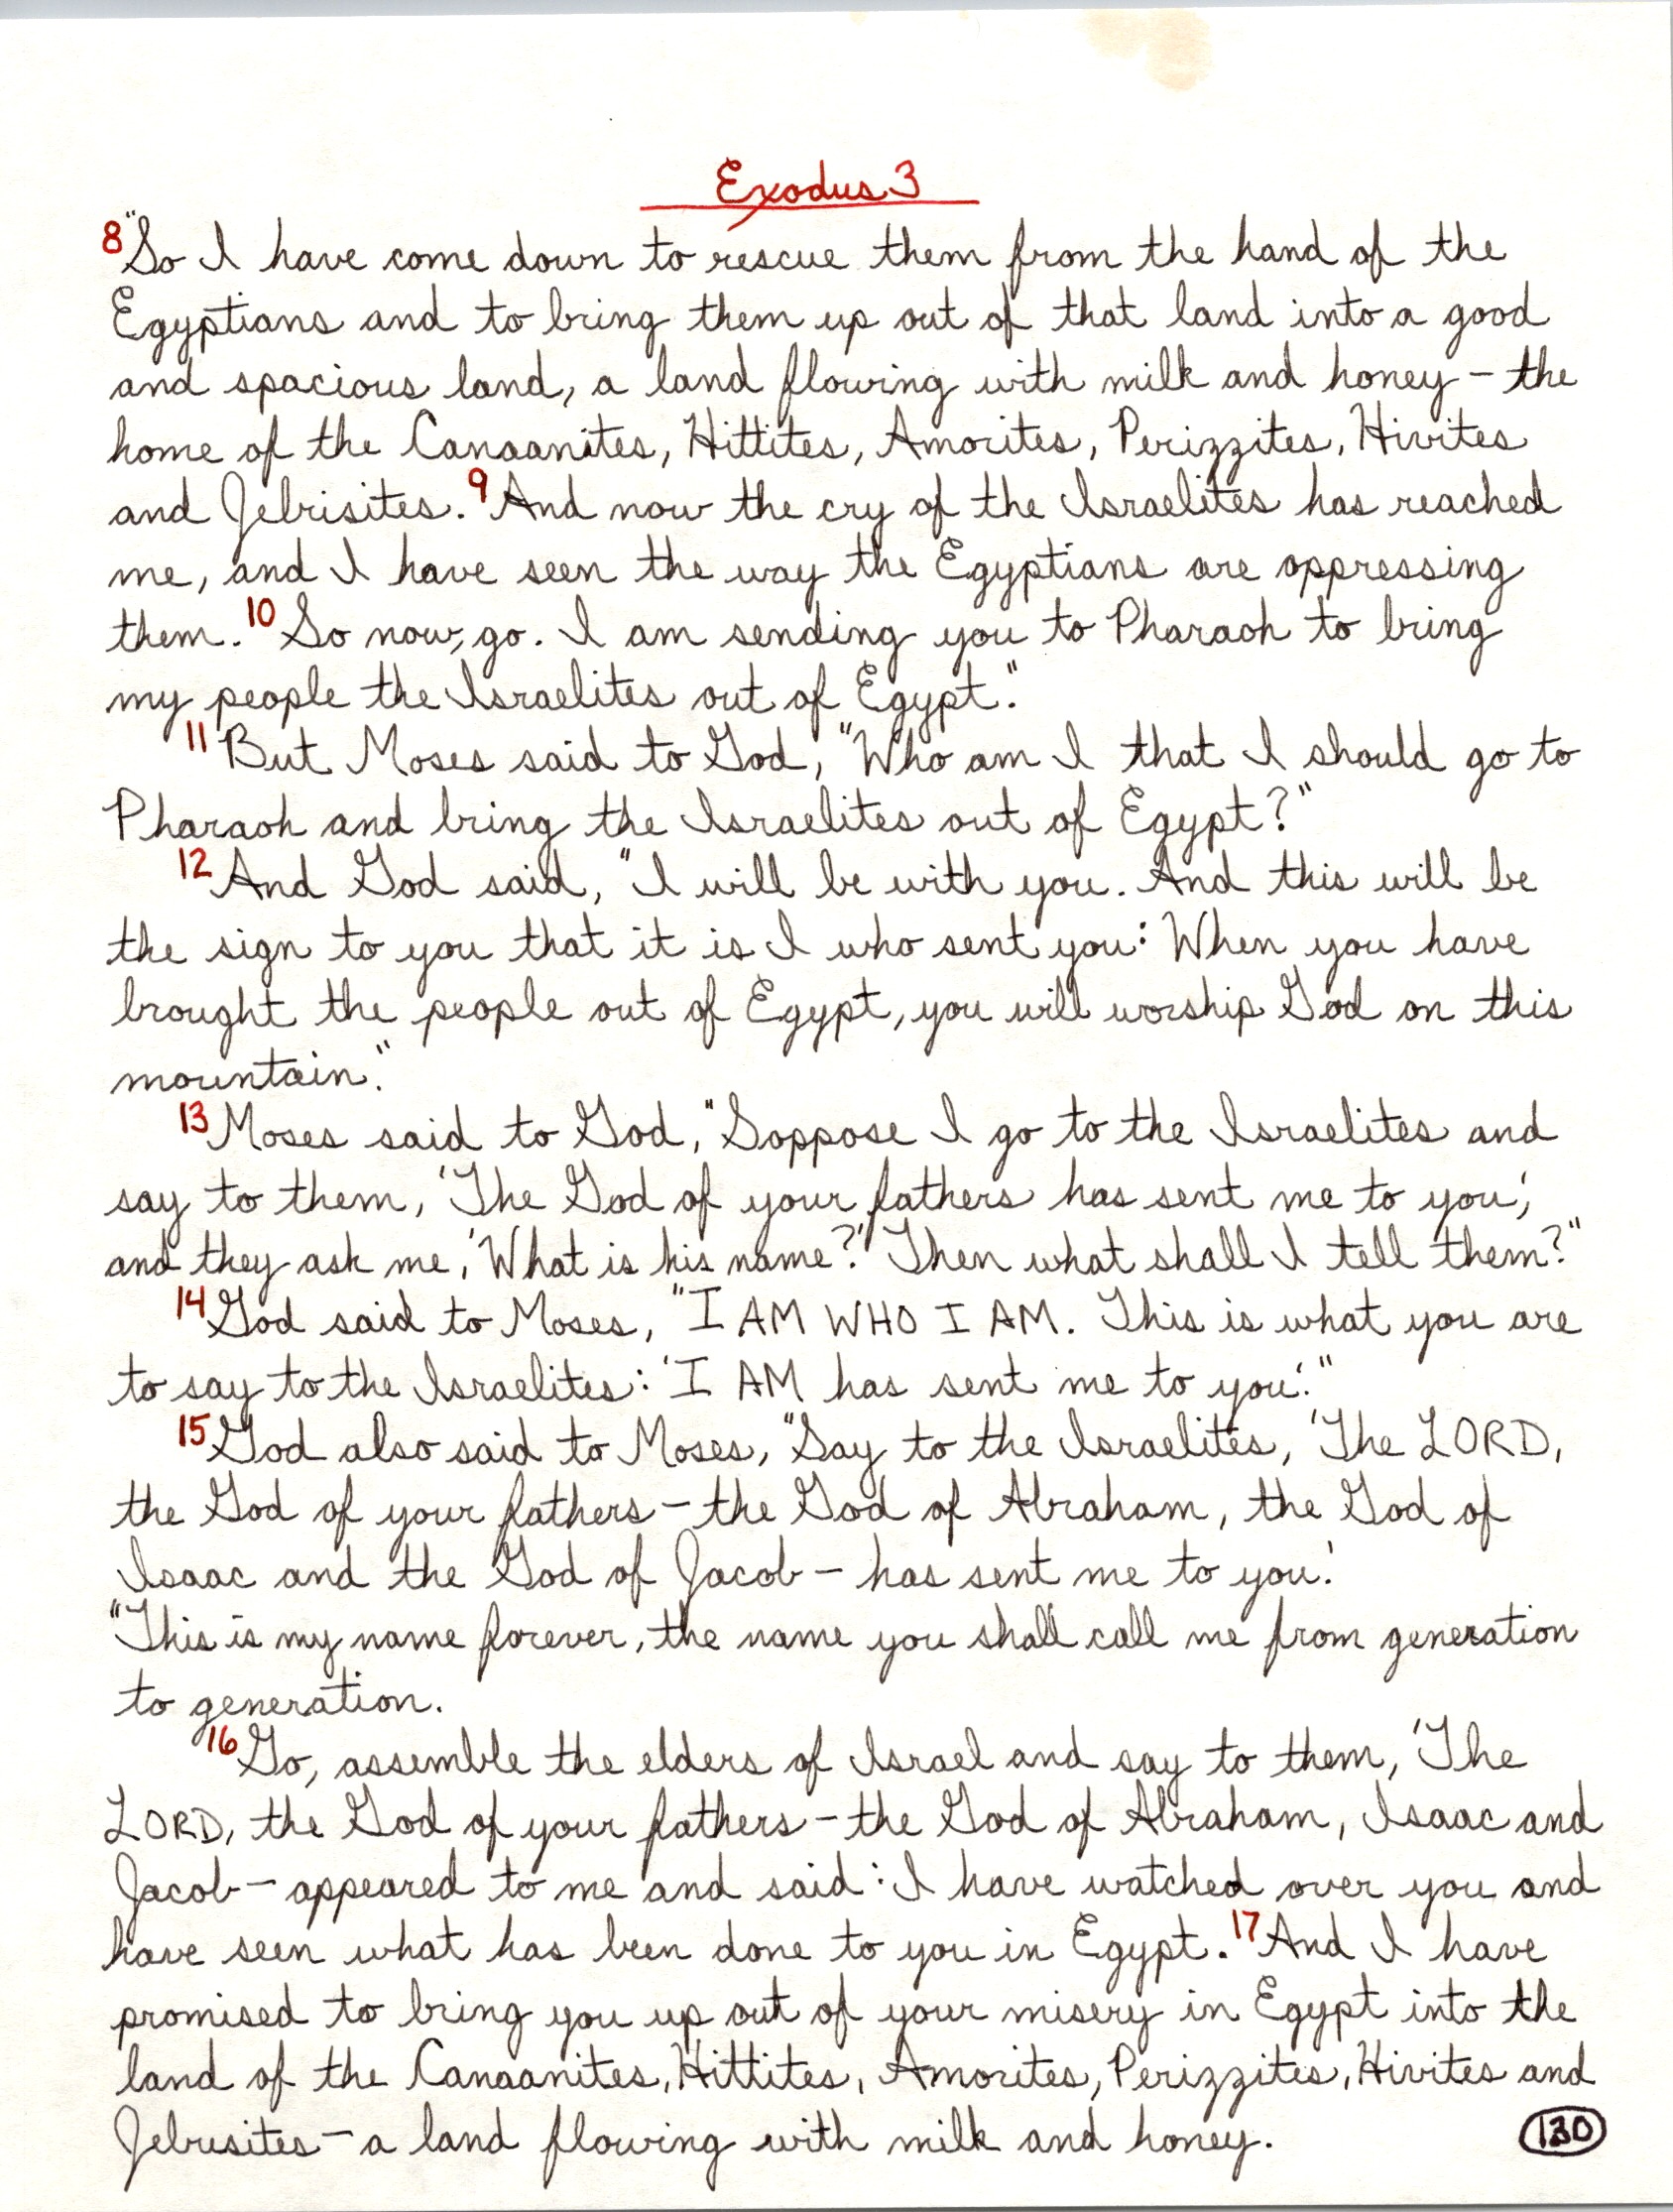 Exodus 3
8 "So I have come down to rescue them from the hand of the
Egyptians and to bring them up out of that land into a good
and spacious land, a land flowing with milk and honey – the
home of the Canaanites, Hittites, Amorites, Perizzites, Hivites
and Jebrisites. 9 And now the cry of the Israelites has reached
me, and I have seen the way the Egyptians are oppressing
them. 10 So now, go. I am sending you to Pharaoh to bring
my people the Israelites out of Egypt."
11 But Moses said to God, "Who am I that I should go to
Pharaoh and bring the Israelites out of Egypt?"
12 And God said, "I will be with you. And this will be
the sign to you that it is I who sent you: When you have
brought the people out of Egypt, you will worship God on this
mountain."
13 Moses said to God, "Soppose I go to the Israelites and
say to them, 'The God of your fathers has sent me to you,'
and they ask me, 'What is his name?' Then what shall I tell them?"
14 God said to Moses, "I AM WHO I AM. This is what you are
to say to the Israelites: 'I AM has sent me to you.'"
15 God also said to Moses, "Say to the Israelites, 'The LORD,
the God of your fathers – the God of Abraham, the God of
Isaac and the God of Jacob – has sent me to you.'
"This is my name forever, the name you shall call me from generation
to generation.
16 Go, assemble the elders of Israel and say to them, 'The
LORD, the God of your fathers – the God of Abraham, Isaac and
Jacob – appeared to me and said: I have watched over you and
have seen what has been done to you in Egypt. 17 And I have
promised to bring you up out of your misery in Egypt into the
land of the Canaanites, Hittites, Amorites, Perizzites, Hivites and
Jebusites – a land flowing with milk and honey.
130